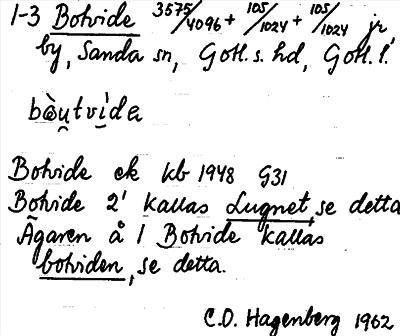 1-3 Botvide 3575/4096 + 105/1024 + 105/1024 jr,
by, Sanda sn, Gotl. s. hd, Gotl. l.
bòu̯tvi̯da
Botvide ek kb 1948 G31
Botvide 2¹ kallas Lugnet, se detta
Ägaren å 1 Botvide kallas
botviden, se detta.
C.O. Hagenberg 1962